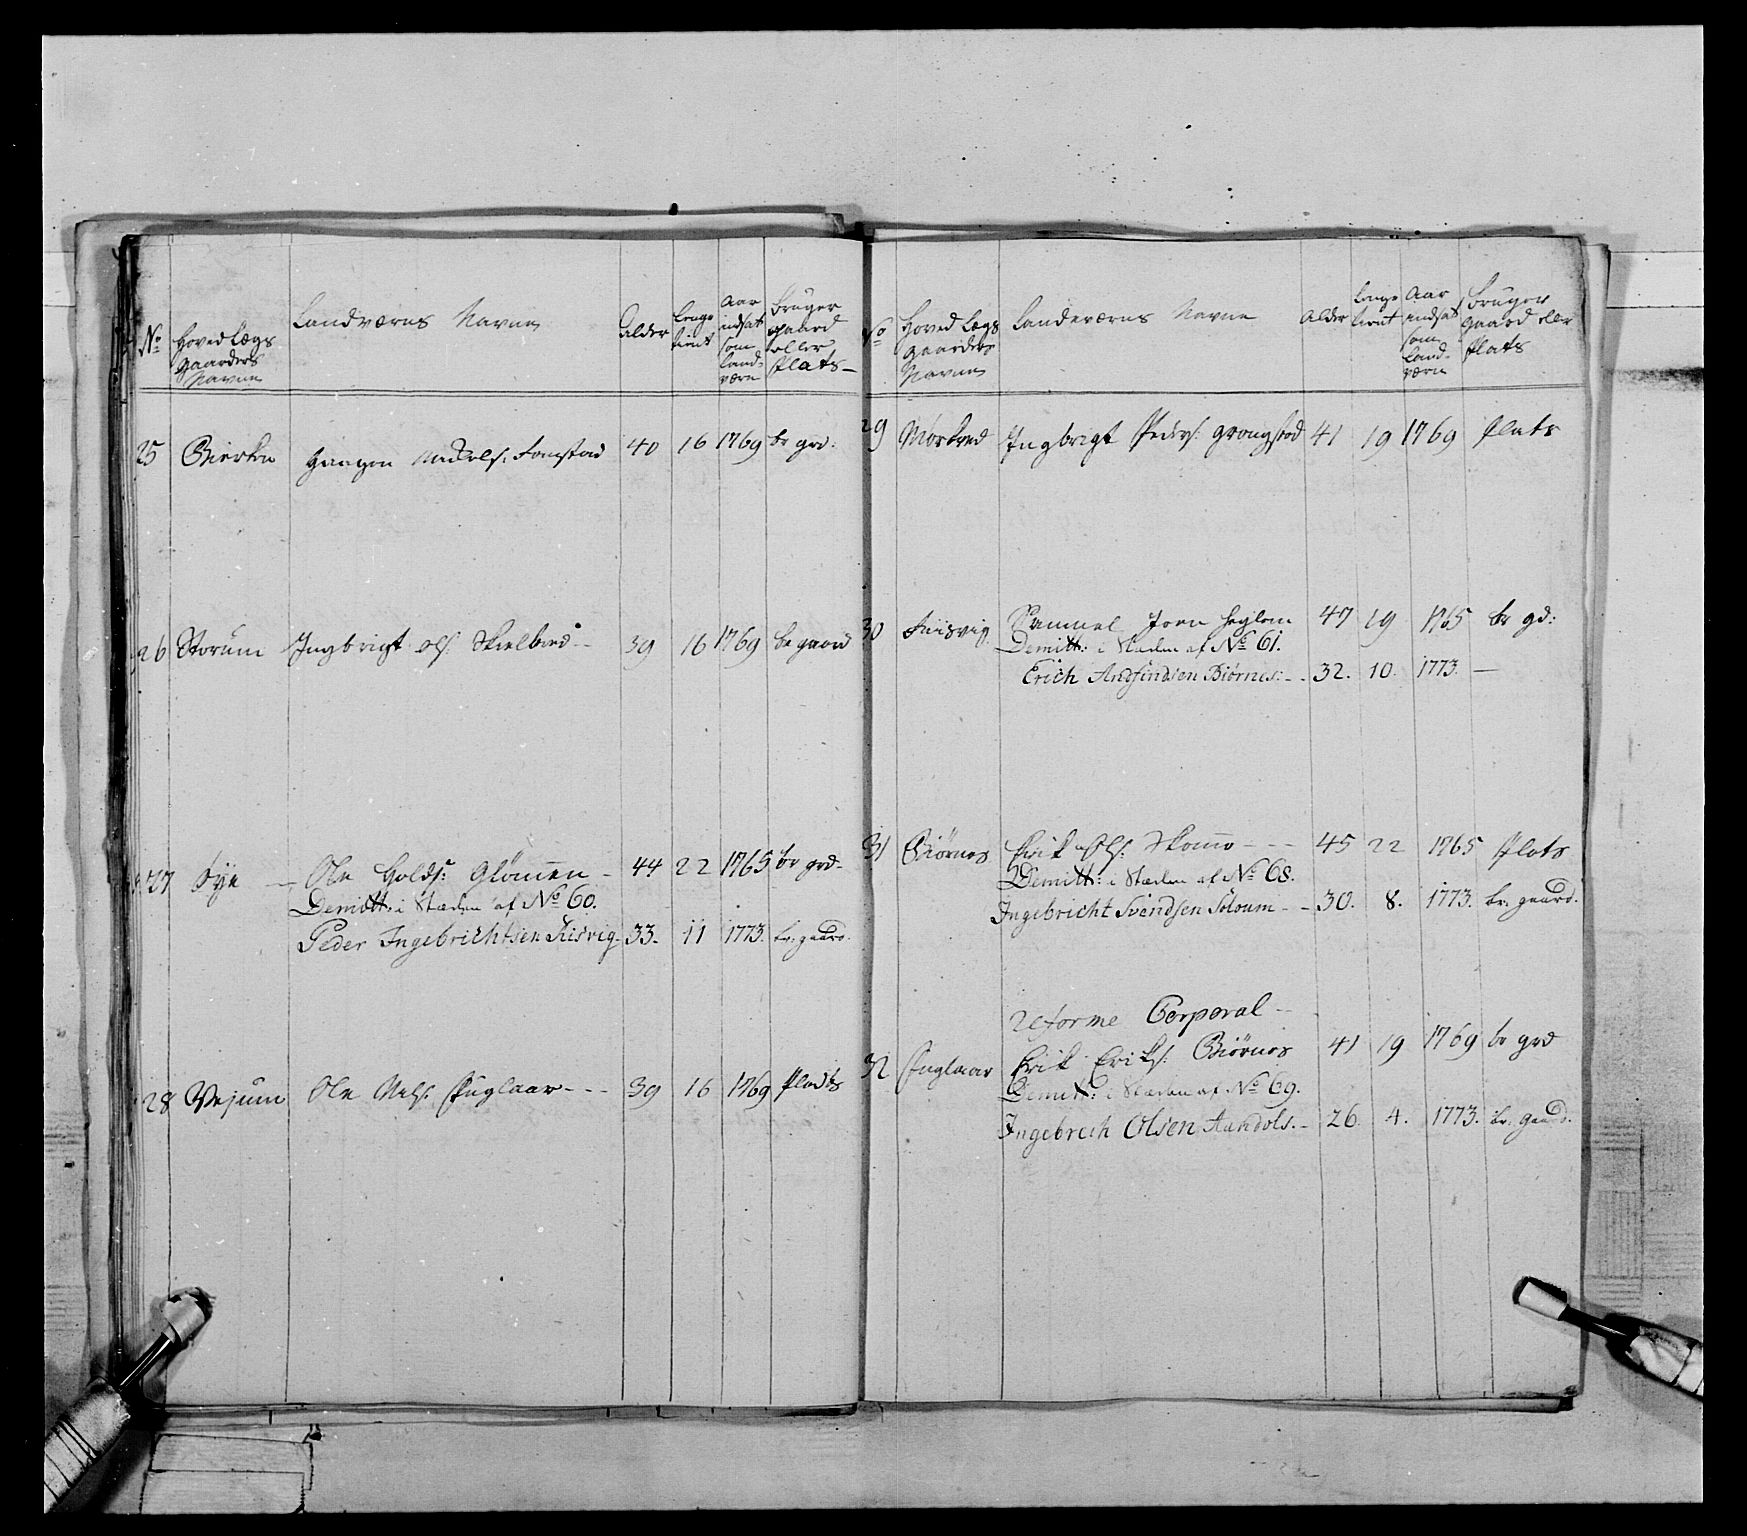 No
Hoved Lægs
gaarders
Navne
Landværns Navne
Alder
Lenge
tient
Aar
indsat
som
Land-
værn
bruger
gaard
eller
Plats
25 Bierken Haagen Fomstad 40 16 1769 br grd:
26 Storum Ingbrigt Ols: Skielbred 39 16 1769 br gaard
27 Bye Ole Golds: Glömmen 44 22 1765 br grd
Demitt: i Stæden af No 60.
Peder Ingebrichtsen Kisvig 33. 11 1773. br: gaard.
28 Vejum Ole Nels: Fuglaar 39 16 1769 Plads
No
Hoved Lægs
gaarders
Navne
Landeværns Navne
Alder
Lenge
tient
Aar
indsat
som
Land-
værn
bruger
gaard eller
Plats
29 Morkved Ingbrigt Peders: Grongstad 41 19 1769 Plats
30 Samuel Joen 47 19 1765 br gd:
Demitt: i Stæden af No 61.
Erich Andfindsen Biörnes: 32. 10. 1773. —
31 Biörnes Erik Ols: Skomo 45 22 1765 Plats
Demitt: i Stæden af No 68.
Ingebricht Svendsen Soloum 30. 8. 1773. br: gaard.
Reforme Corporal
32 Fuglaar Erik Eriks: Biörnes 41 19 1769 br grd
Demitt: i Stæden af No 69.
Ingebrech Olsen Aandols. 26. 4. 1773. br: gaard.